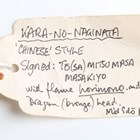 KARA-NO-NAGINATA
'CHINESE' STYLE
Signed: TO(SA) MITSUMASA
MASAKIYO
with flame horimono, and
dragon (bronze) head.
Mid